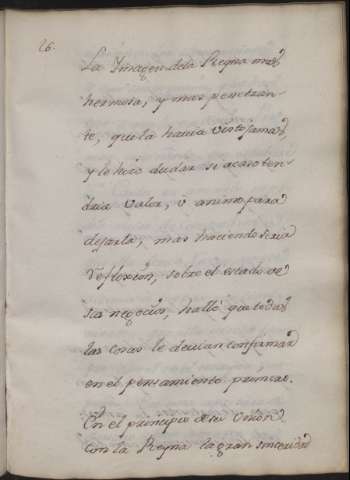 26.
La Ymagen dela Reyna mas
hermosa, y mas penetran-
te, que la havia visto jamas,
y le hizo dudar si acaso ten-
dria valor, ò animo para
dejarla; mas haciendo seria
reflexion, sobre el estado de
sus negocios, halló que todas
las cosas le devian confirmar
en el pensamiento primero.
En el principio de su Union
con la Reyna la gran sinceridad